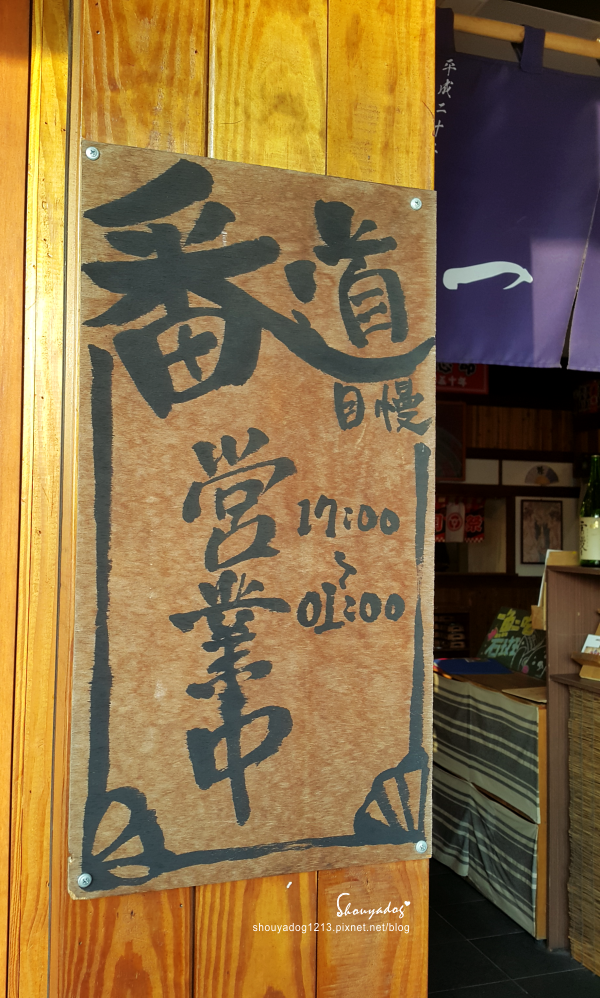 道番
自慢
営業中
17:00
~
01:00
一
Shouyadog
shouyadog1213.pixnet.net/blog